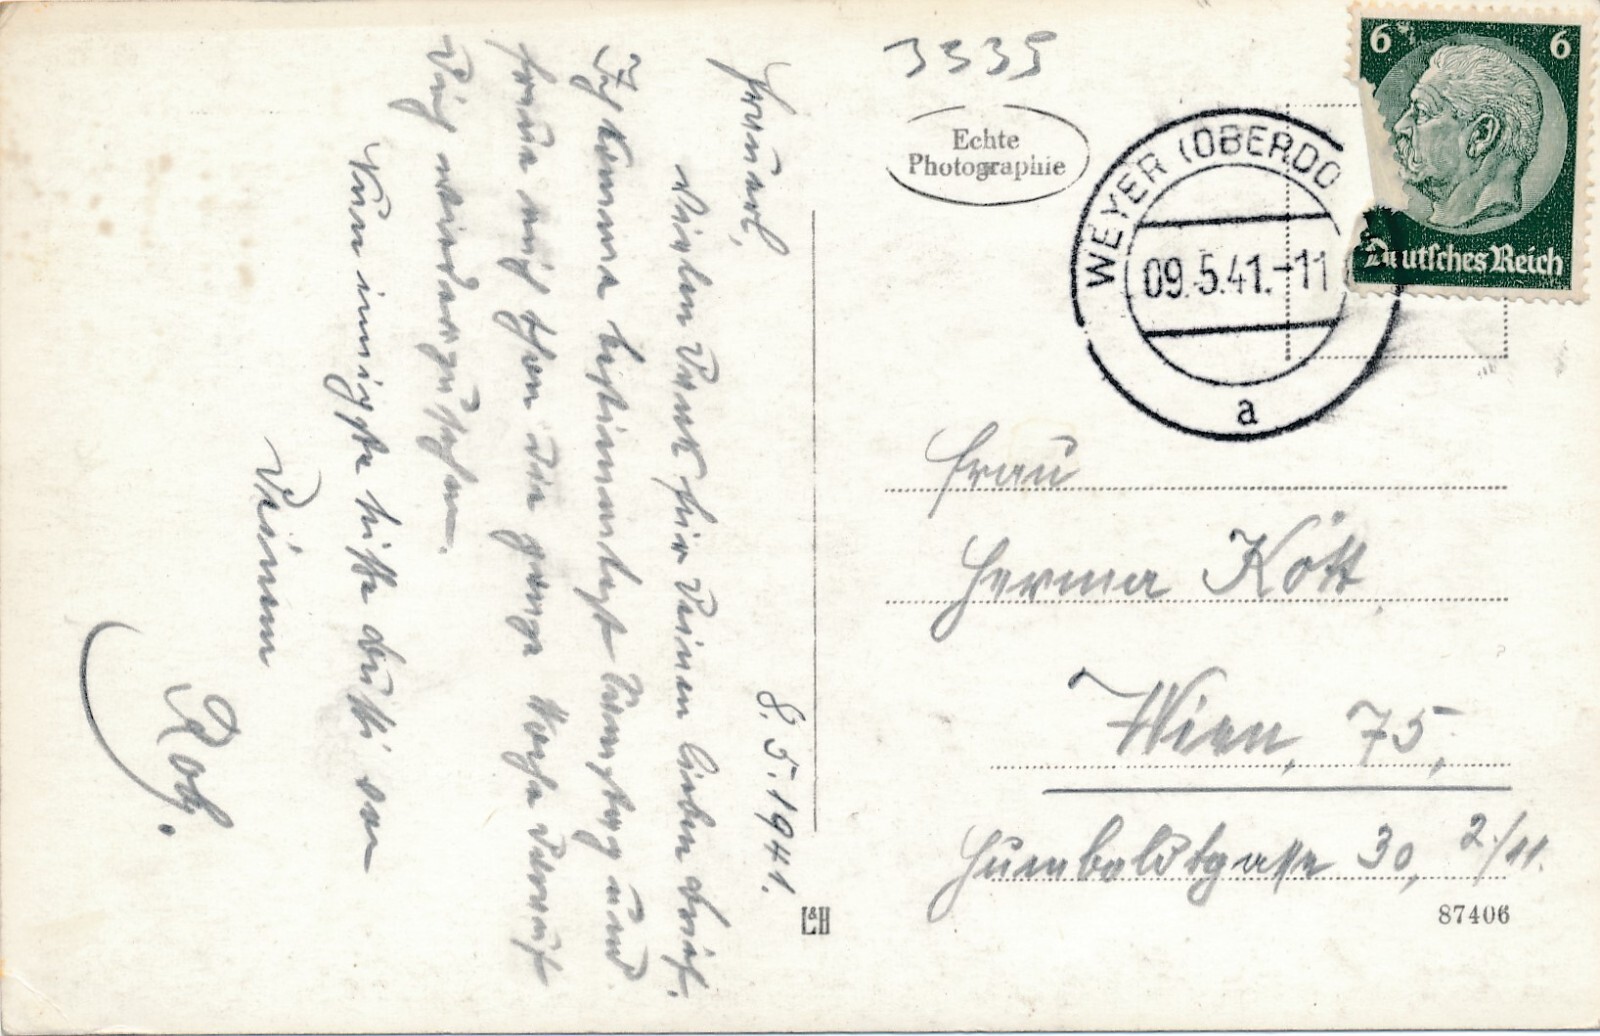 Frauerl,
8.5.1941.
Vielen Dank für Deinen lieben Brief.
Ich komme bestimmt Samstag und
freue mich schon die ganze Woche darauf
Dich wiederzusehen.
Nun innigste Küsse Butzi von
Deinem
Rob.
3335
Echte
Photographie
WEYER (OBERDO
09.5.41.-11
a
6 6
Deutsches Reich
Frau
Herma Kött,
Wien, 75,
Humboldtgasse 30, 2/11.
87406
L&H